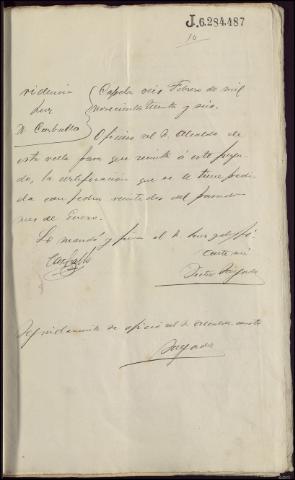 J.6.284.487
10
videncia
Juez
Sr Carballo
Capela seis Febrero de mil
novecientos treinta y seis.
Oficiese al Sr. Alcalde de
esta villa para que remita á este juzga-
do, la certificación que se le tiene pedi-
da con fecha veintidos del pasado
mes de Enero.
Lo mandó y firma el Sr Juez doy fé.
Carballo
Ante mi
Seguidamente se ofició al Sr Alcalde doy fe